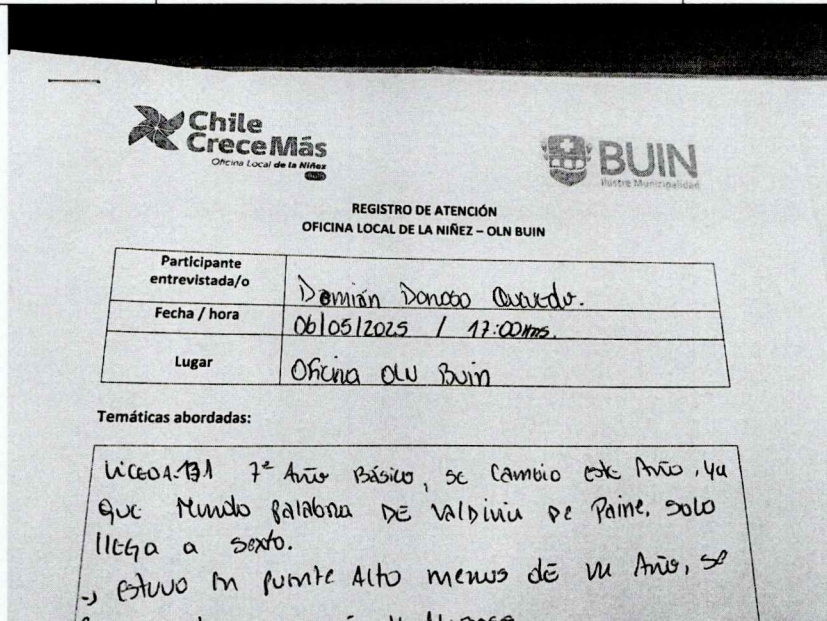 Chile
Crece Más
Oficina Local de la Niñez
BUIN
BUIN
Ilustre Municipalidad
REGISTRO DE ATENCIÓN
OFICINA LOCAL DE LA NIÑEZ – OLN BUIN
Participante entrevistada/o
Damián Donoso Quevedo.
Fecha / hora
06/05/2025 / 17:00 Hrs.
Lugar
Oficina OLN Buin
Temáticas abordadas:
Liceo A-131 7º Año Básico, se cambio este Año, ya
que Mundo Palabra DE Valdivia de Paine, solo
llega a sexto.
-) Estuvo en puente Alto menos de un Año, se